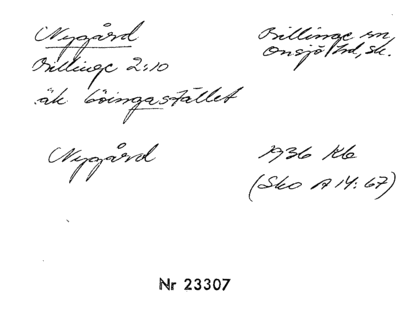 Nygård
Billinge sn,
Onsjö hd, sk.
Billinge 2:10
äk böingastället
Nygård
1936 Kb
(Sko A 14:67)
Nr 23307